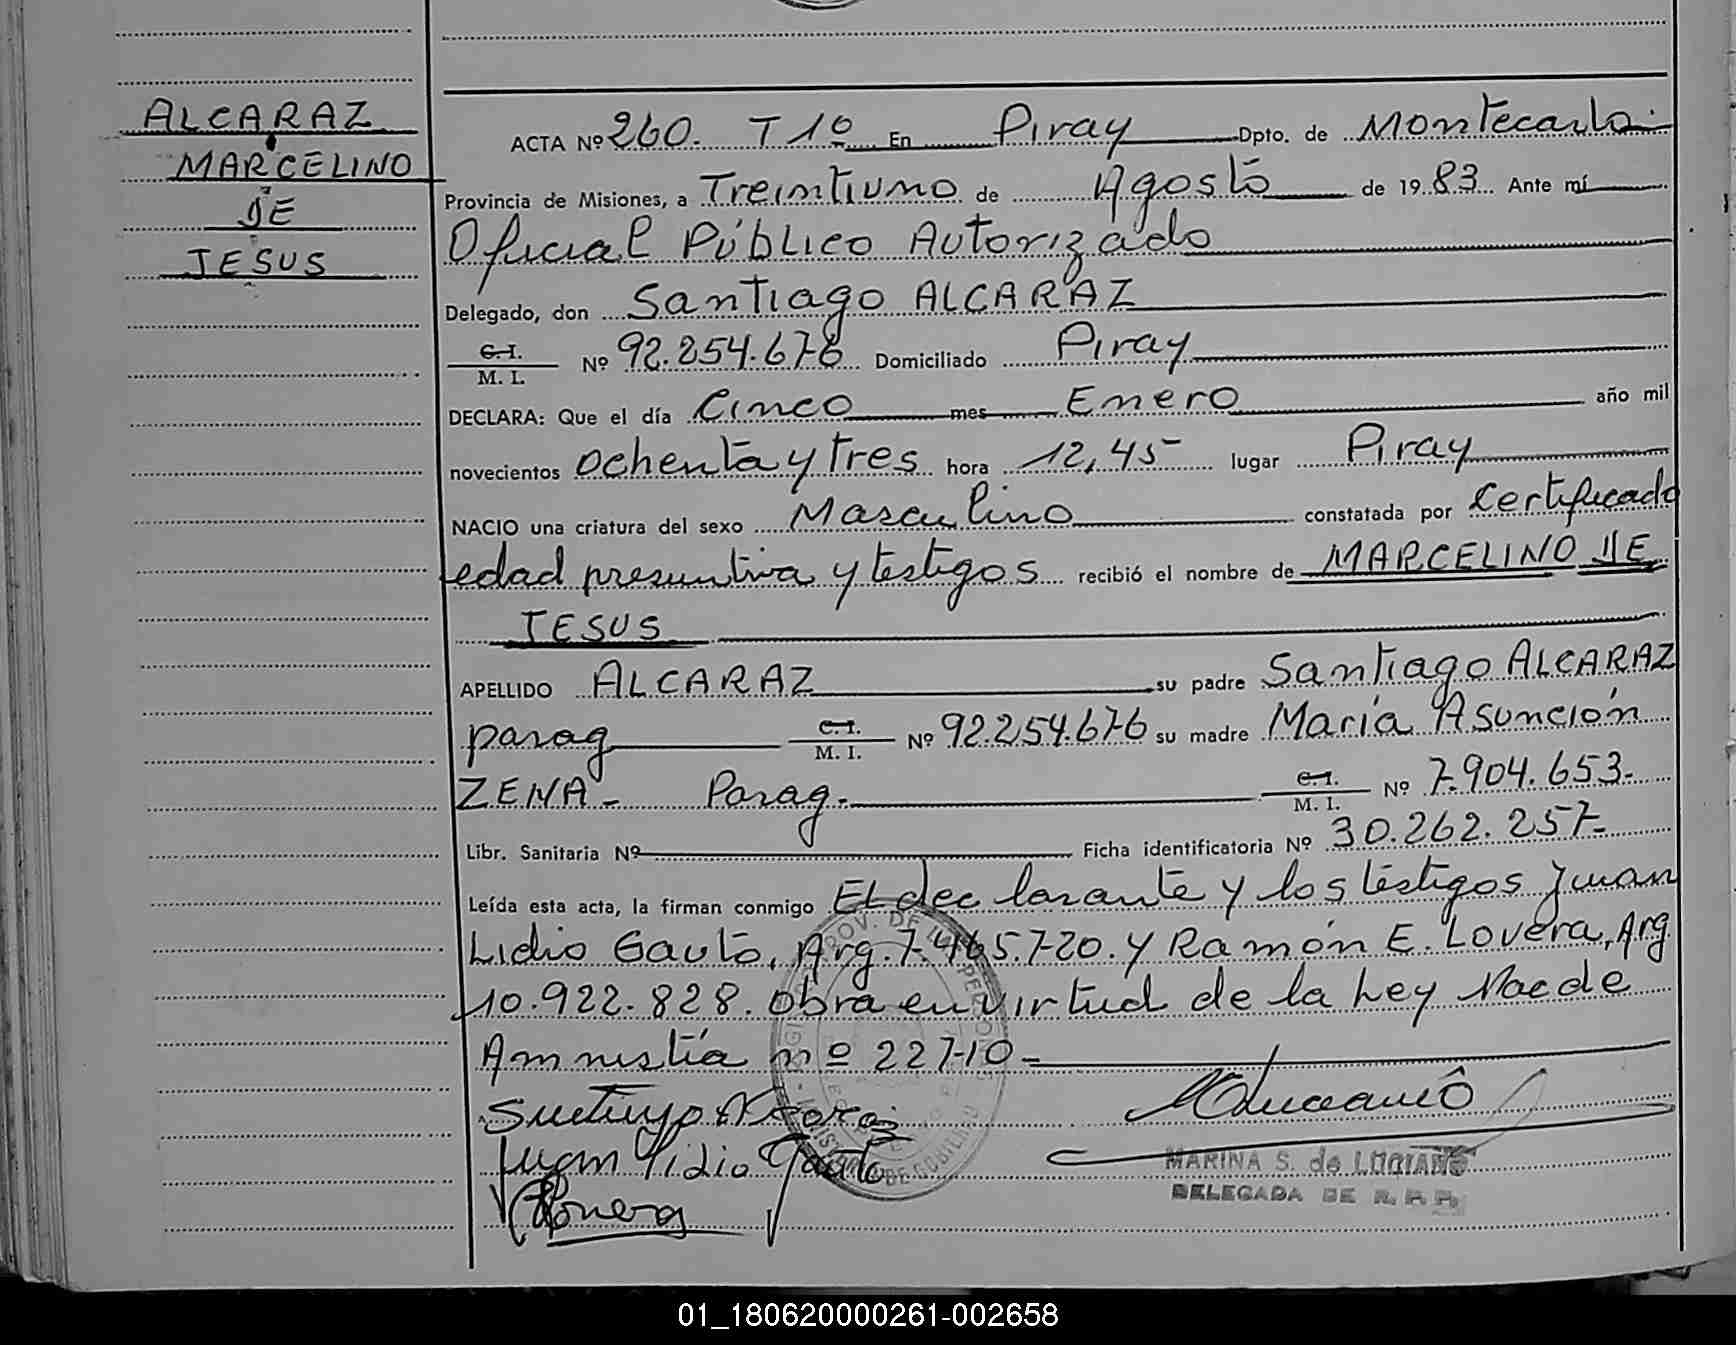 ALCARAZ
MARCELINO
DE
JESUS
ACTA Nº 260. T 1º En Piray Dpto. de Montecarlo.
Provincia de Misiones, a Treintiuno de Agosto de 1983 Ante mí
Oficial Público Autorizado
Delegado, don Santiago ALCARAZ
C.I. M. I. Nº 92.254.676 Domiciliado Piray
DECLARA: Que el día Cinco mes Enero año mil
novecientos ochenta y tres hora 12,45 lugar Piray
NACIO una criatura del sexo Masculino constatada por Certificado
edad presuntiva y testigos recibió el nombre de MARCELINO DE
JESUS
APELLIDO ALCARAZ su padre Santiago ALCARAZ
parag C.I. M. I. Nº 92.254.676 su madre María Asunción
ZENA - Parag. C.I. M. I. Nº 7.904.653-
Libr. Sanitaria Nº Ficha identificatoria Nº 30.262.257-
Leída esta acta, la firman conmigo El declarante y los testigos Juan
Lidio Gauto, Arg. 7.465.720. y Ramón E. Lovera, Arg
10.922.828. obra en virtud de la Ley Nac de
Amnistía nº 22710-
Juan Lidio Gauto
MARINA S. de LUCIANO
DELEGADA DE R. P. P.
01_180620000261-002658